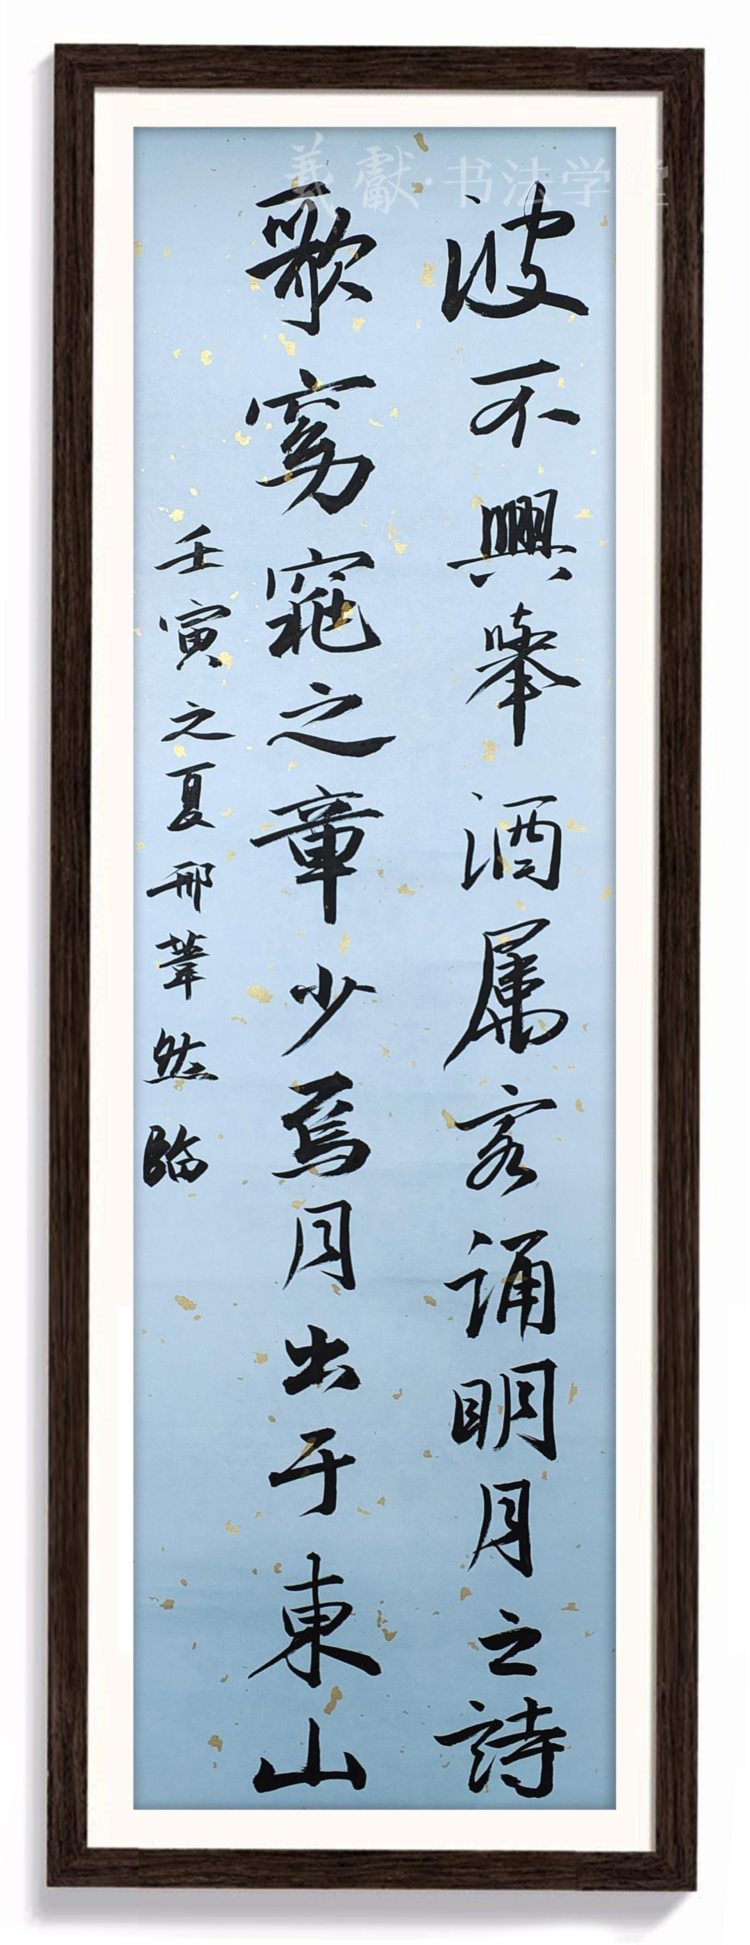 羲獻·书法学堂
波不興舉酒属客诵明月之詩
歌窈窕之章少焉月出于東山
壬寅之夏邢葦然臨